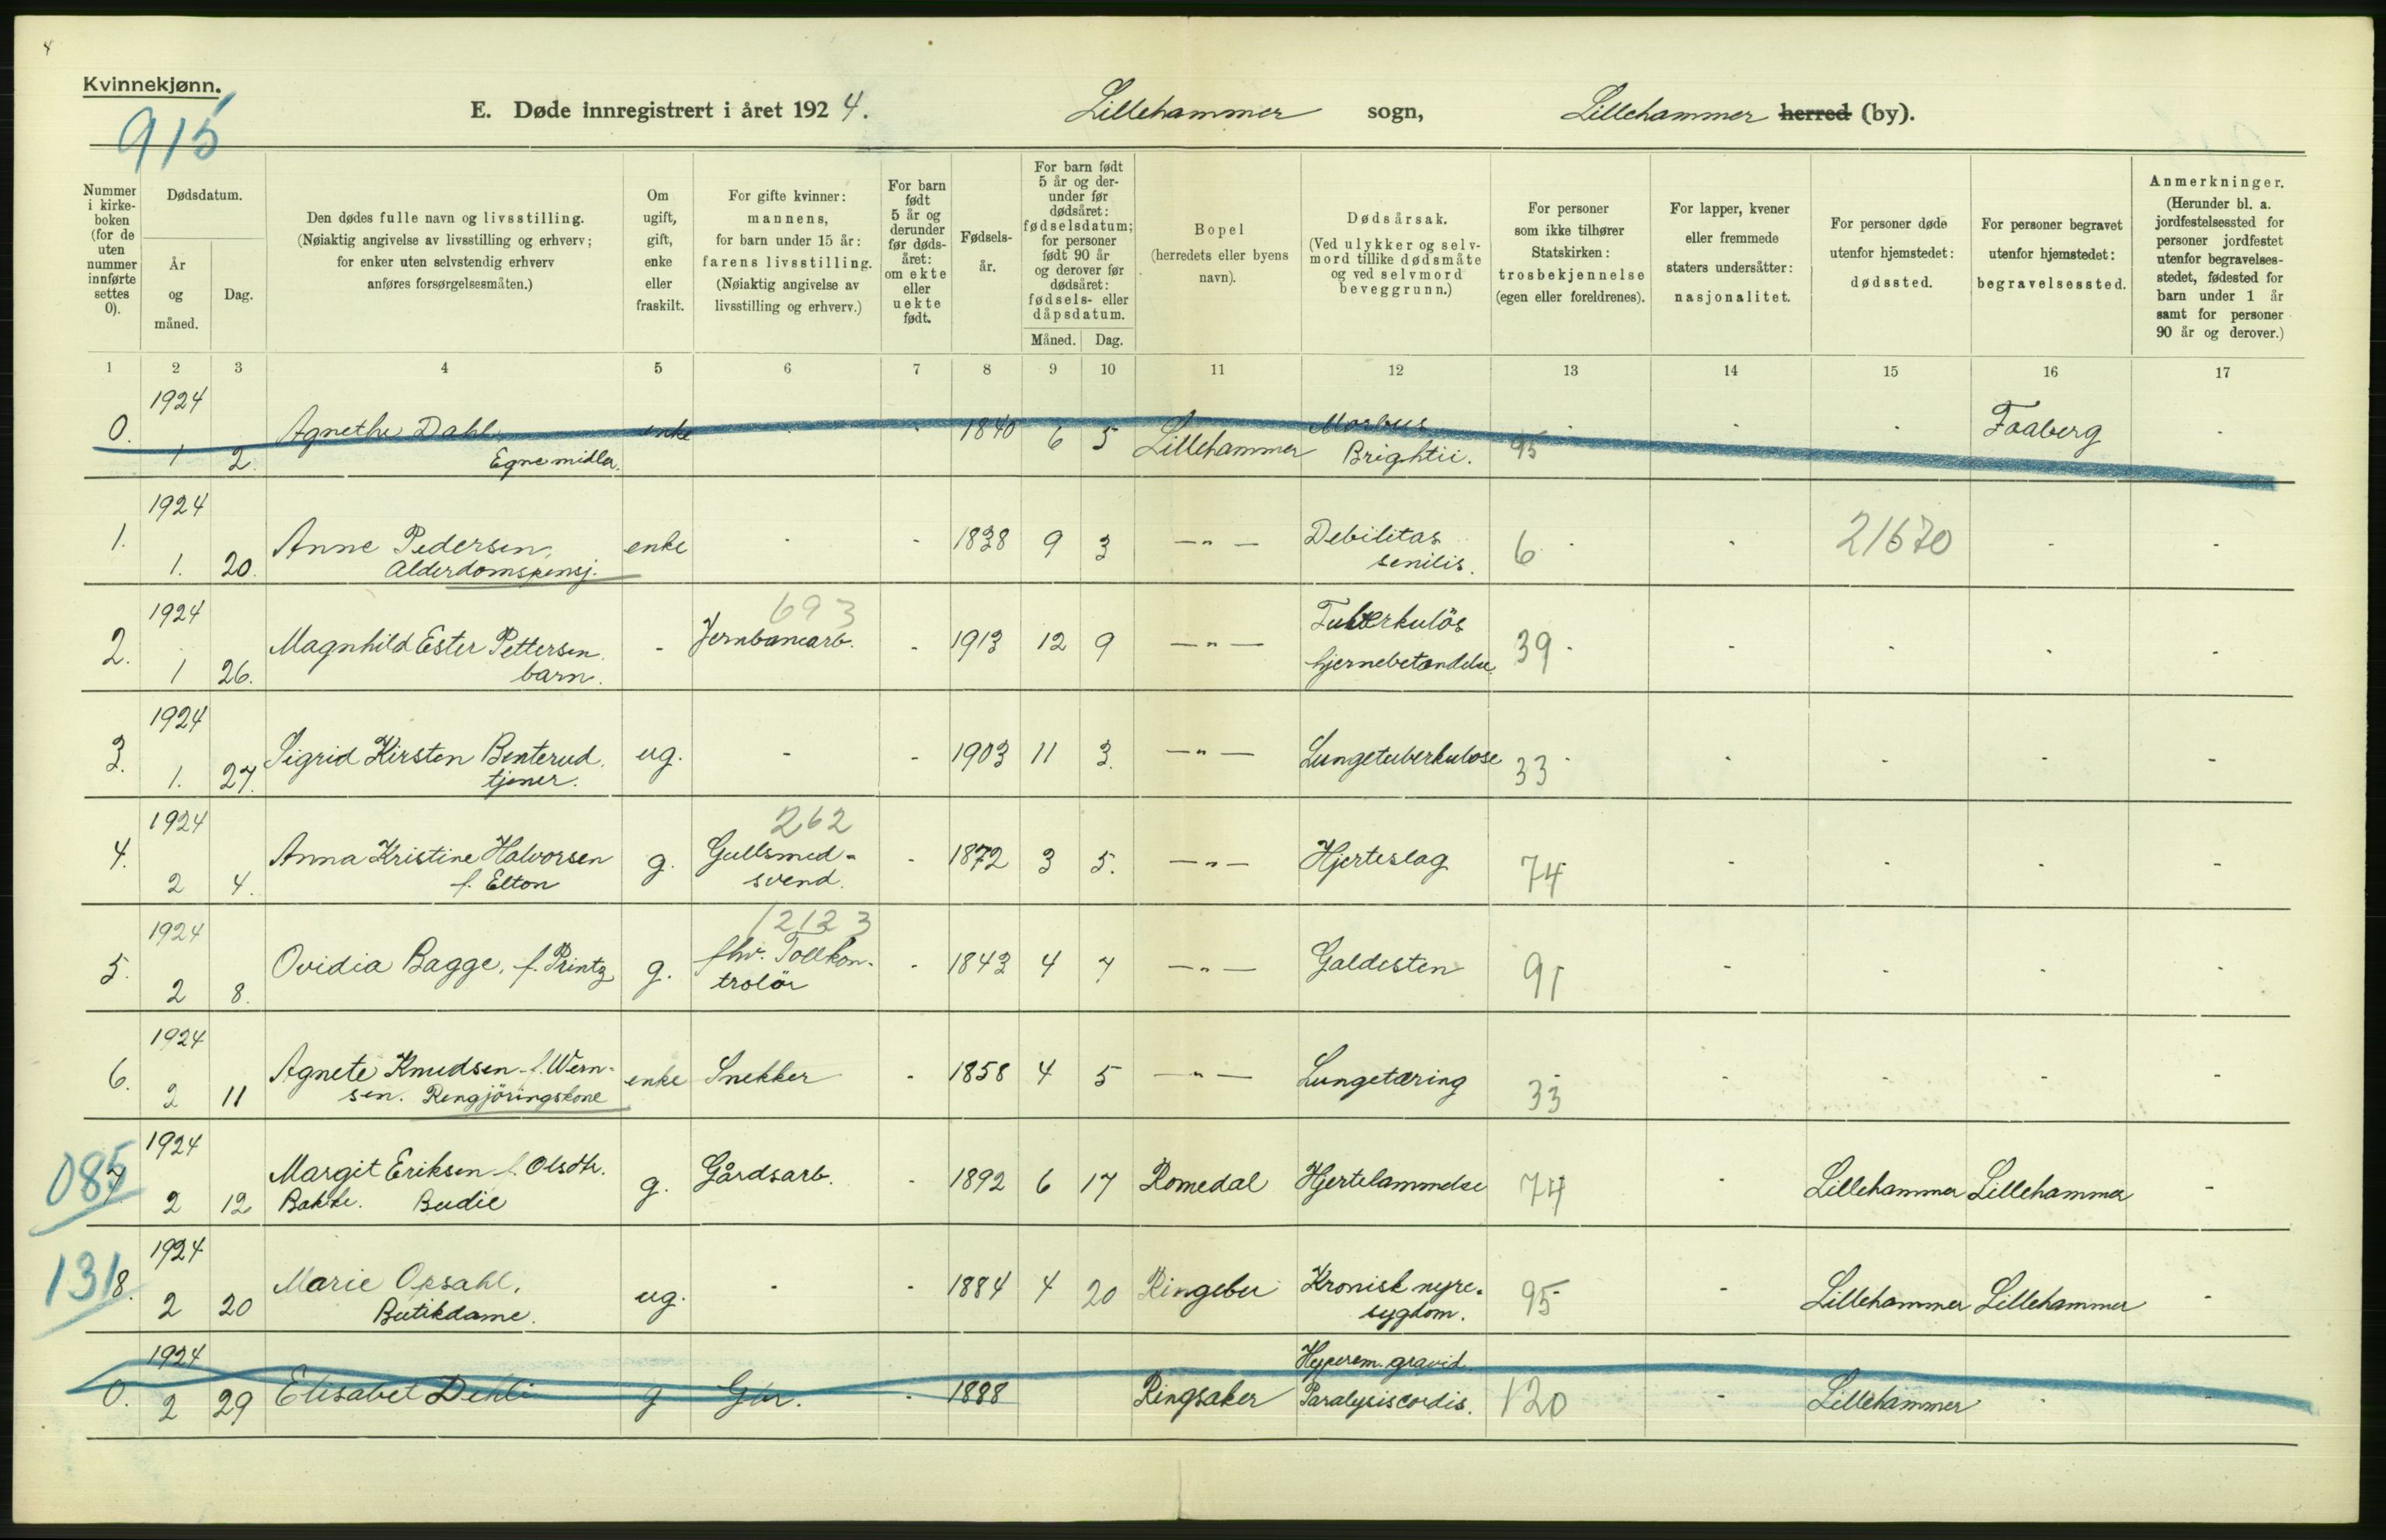 Kvinnekjønn.
915
E. Døde innregistrert i året 1924. Lillehammer sogn, Lillehammer herred (by).
Nummer i kirkeboken (for de uten nummer innførte settes 0).
Dødsdatum.
År og måned.
Dag.
Den dødes fulle navn og livsstilling.
(Nøiaktig angivelse av livsstilling og erhverv;
for enker uten selvstendig erhverv
anføres forsørgelsesmåten.)
Om ugift, gift, enke eller fraskilt.
For gifte kvinner: mannens, for barn under 15 år: farens livsstilling. (Nøiaktig angivelse av livsstilling og erhverv.)
For barn født 5 år og derunder før døds-året: om ekte eller uekte født.
Fødsels-år.
For barn født 5 år og der-under før dødsåret: fødselsdatum; for personer født 90 år og derover før dødsåret: fødsels- eller dåpsdatum.
Måned. Dag.
Bopel (herredets eller byens navn).
Dødsårsak. (Ved ulykker og selv-mord tillike dødsmåte og ved selvmord beveggrunn.)
For personer som ikke tilhører Statskirken: trosbekjennelse (egen eller foreldrenes).
For lapper, kvener eller fremmede staters undersåtter: nasjonalitet.
For personer døde utenfor hjemstedet: dødssted.
For personer begravet utenfor hjemstedet: begravelsessted.
Anmerkninger. (Herunder bl. a. jordfestelsessted for personer jordfestet utenfor begravelses-stedet, fødested for barn under 1 år samt for personer 90 år og derover.)
1 2 3 4 5 6 7 8 9 10 11 12 13 14 15 16 17
1924
0. 1 2. Agnethe Dahl enke - - 1840 6 5 Lillehammer Morbus 95 - - - Faaberg -
Egne midler. Brightii.
1924
1. 1. 20. Anne Pedersen, enke - - 1838 9 3 —"— Debilitas 6 - - 21670 - -
Alderdomspensj. senilis.
1924 693
2. 1 26. Magnhild Ester Pettersen - Jernbanearb. - 1913 12 9 —"— Tuberkuløs 39 - - - - -
barn. hjernebetændelse
1924
3. 1. 27. Sigrid Kirsten Benterud. ug. - - 1903 11 3. —"— Lungetuberkulose 33 - - - - -
tjener.
1924 262
4. 2 4. Anna Kristine Halvorsen g. Gullsmed- - 1872 3 5. —"— Hjerteslag 74 - - - - -
f. Elton svend.
1924 12123
5. 2 8. Ovidia Bagge, f. Printz g. fhv. Tollkon- - 1843 4 7 —"— Galdesten 91 - - - -
trolör
1924
6. 2 11 Agnete Knudsen f. Wern- enke Snekker - 1858 4 5 —"— Lungetæring 33 - - - - -
sen. Rengjöringskone
1924
085 7 2 12 Margit Eriksen f. Olsdtr. g. Gårdsarb. - 1892 6 17 Romedal Hjertelammelse 74 - Lillehammer Lillehammer -
Bakke. Budie
1924
131 8. 2 20 Marie Opsahl, ug. - - 1884 4 20 Ringebu Kronisk nyre- 95 - Lillehammer Lillehammer -
Butikdame. sygdom.
1924 Hyperem. gravid.
0. 2 29 Elisabet Dehli g Gbr. - 1888 Ringsaker Paralysis cordis. 120 - Lillehammer - -